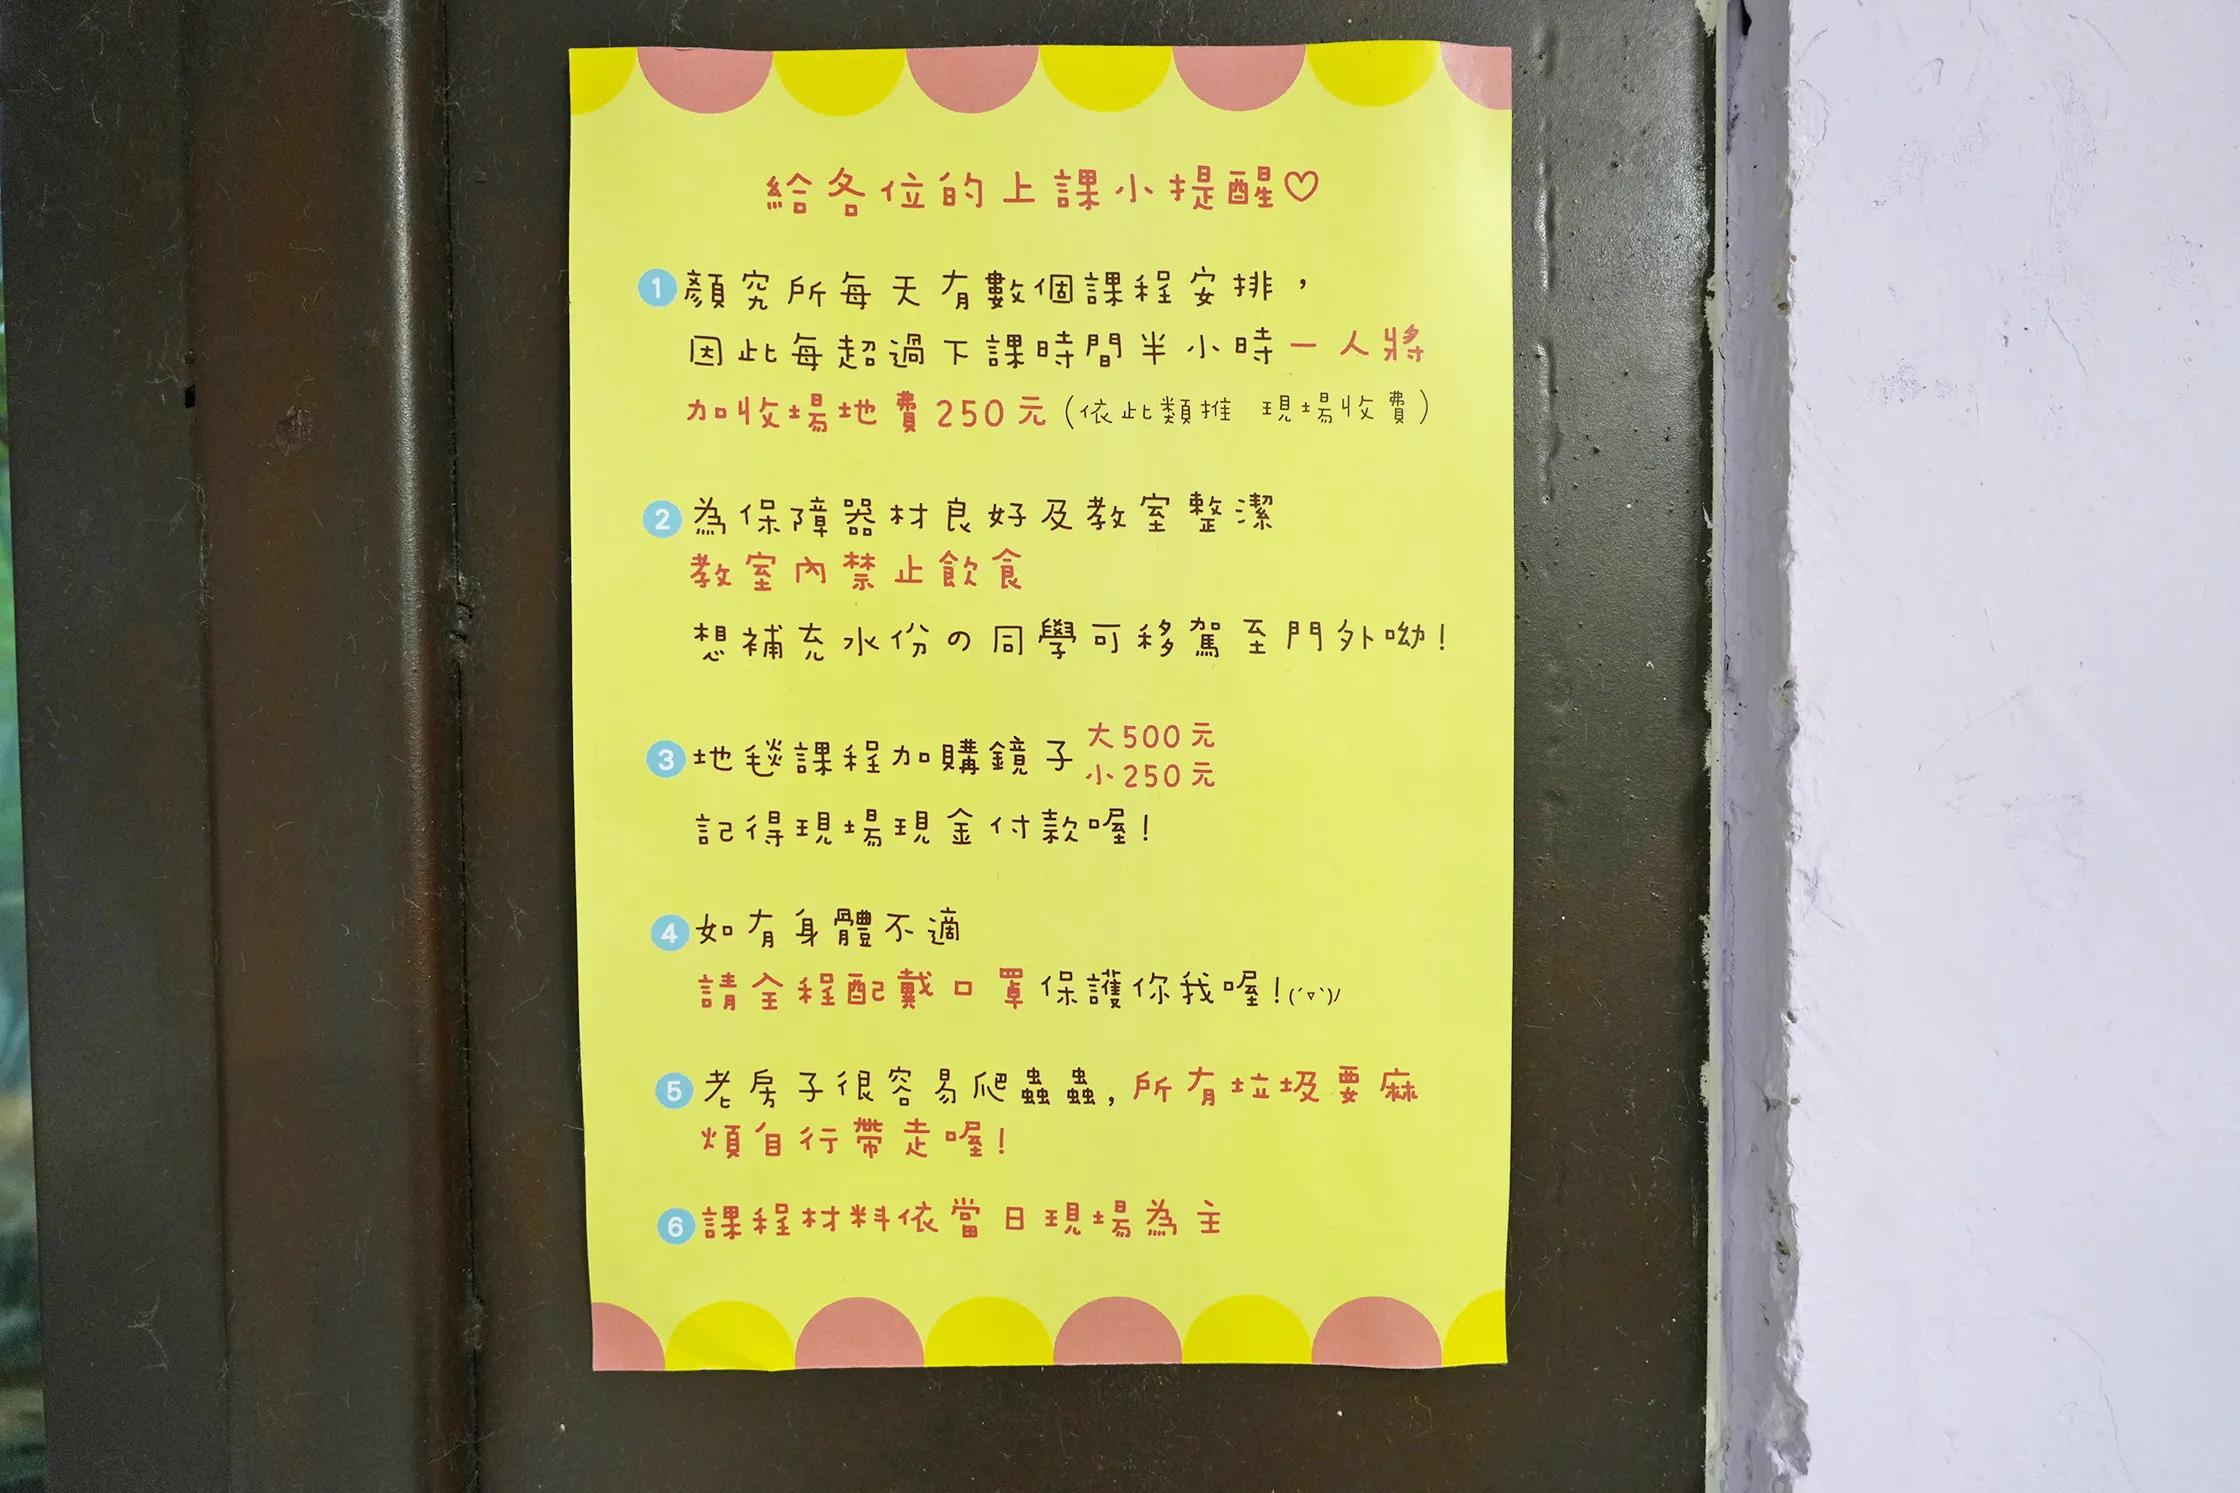 給各位的上課小提醒♡
1 顏究所每天有數個課程安排，
因此每超過下課時間半小時一人將
加收場地費250元（依此類推 現場收費）
2 為保障器材良好及教室整潔
教室內禁止飲食
想補充水份の同學可移駕至門外呦！
3 地毯課程加購鏡子 大500元
小250元
記得現場現金付款喔！
4 如有身體不適
請全程配戴口罩保護你我喔！(´▿`)ﾉ
5 老房子很容易爬蟲蟲，所有垃圾要麻
煩自行帶走喔！
6 課程材料依當日現場為主